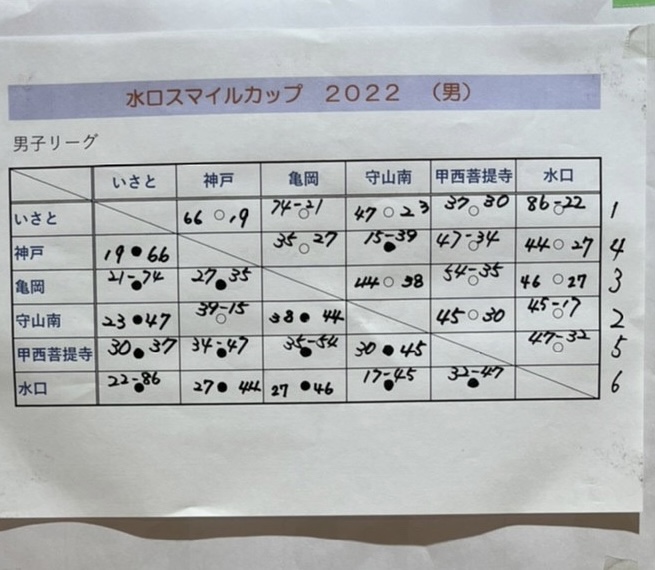 水口スマイルカップ 2022 (男)
男子リーグ
いさと 神戸 亀岡 守山南 甲西菩提寺 水口
いさと 66 ○ 19 74-21 ○ 47 ○ 23 37-30 ○ 86-22 ○ 1
神戸 19 ● 66 35-27 ○ 15-39 ● 47-34 ○ 44 ○ 27 4
亀岡 21-74 ● 27-35 ● 44 ○ 38 54-35 ○ 46 ○ 27 3
守山南 23 ● 47 39-15 ○ 38 ● 44 45 ○ 30 45-17 ○ 2
甲西菩提寺 30 ● 37 34-47 ● 35-54 ● 30 ● 45 47-32 ○ 5
水口 22-86 ● 27 ● 44 27 ● 46 17-45 ● 32-47 ● 6